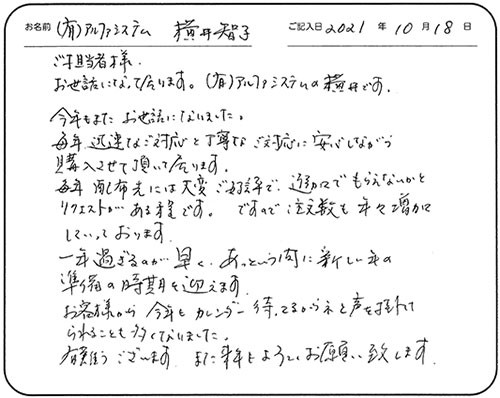 お名前 (有)アルファシステム 横井智子 ご記入日 2021 年 10 月 18 日
ご担当者様.
お世話になって居ります。(有)アルファシステムの横井です.
今年もまた お世話になりました。
毎年 迅速なご対応と丁寧な ご対応に 安心しながら
購入させて頂いて居ります.
毎年 配布先には大変ご好評で、追加でもらえないかと
リクエストがある程です。 ですので注文数も年々増加
していっております.
一年過ぎるのが早く、あっという間に新しい年の
準備の時期を迎えます.
お客様から 今年も カレンダー待ってるからネと声を掛け
られることも多くなりました。
有難うございます. また来年もよろしくお願い致します.